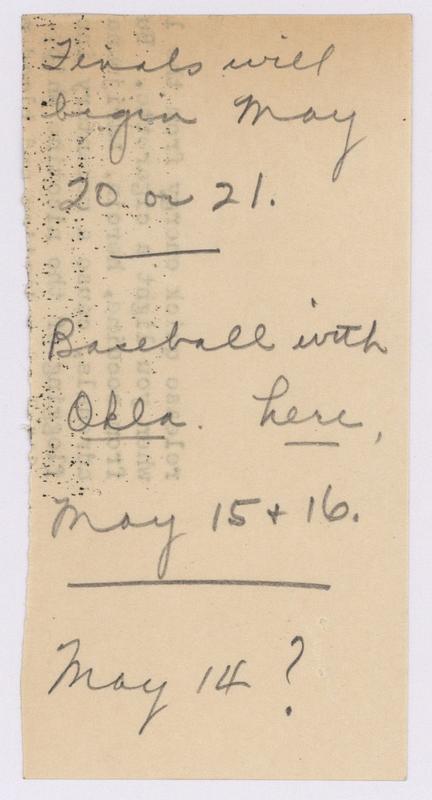 Finals will
begin May
20 or 21.
Baseball with
Okla. here,
May 15 + 16.
May 14 ?